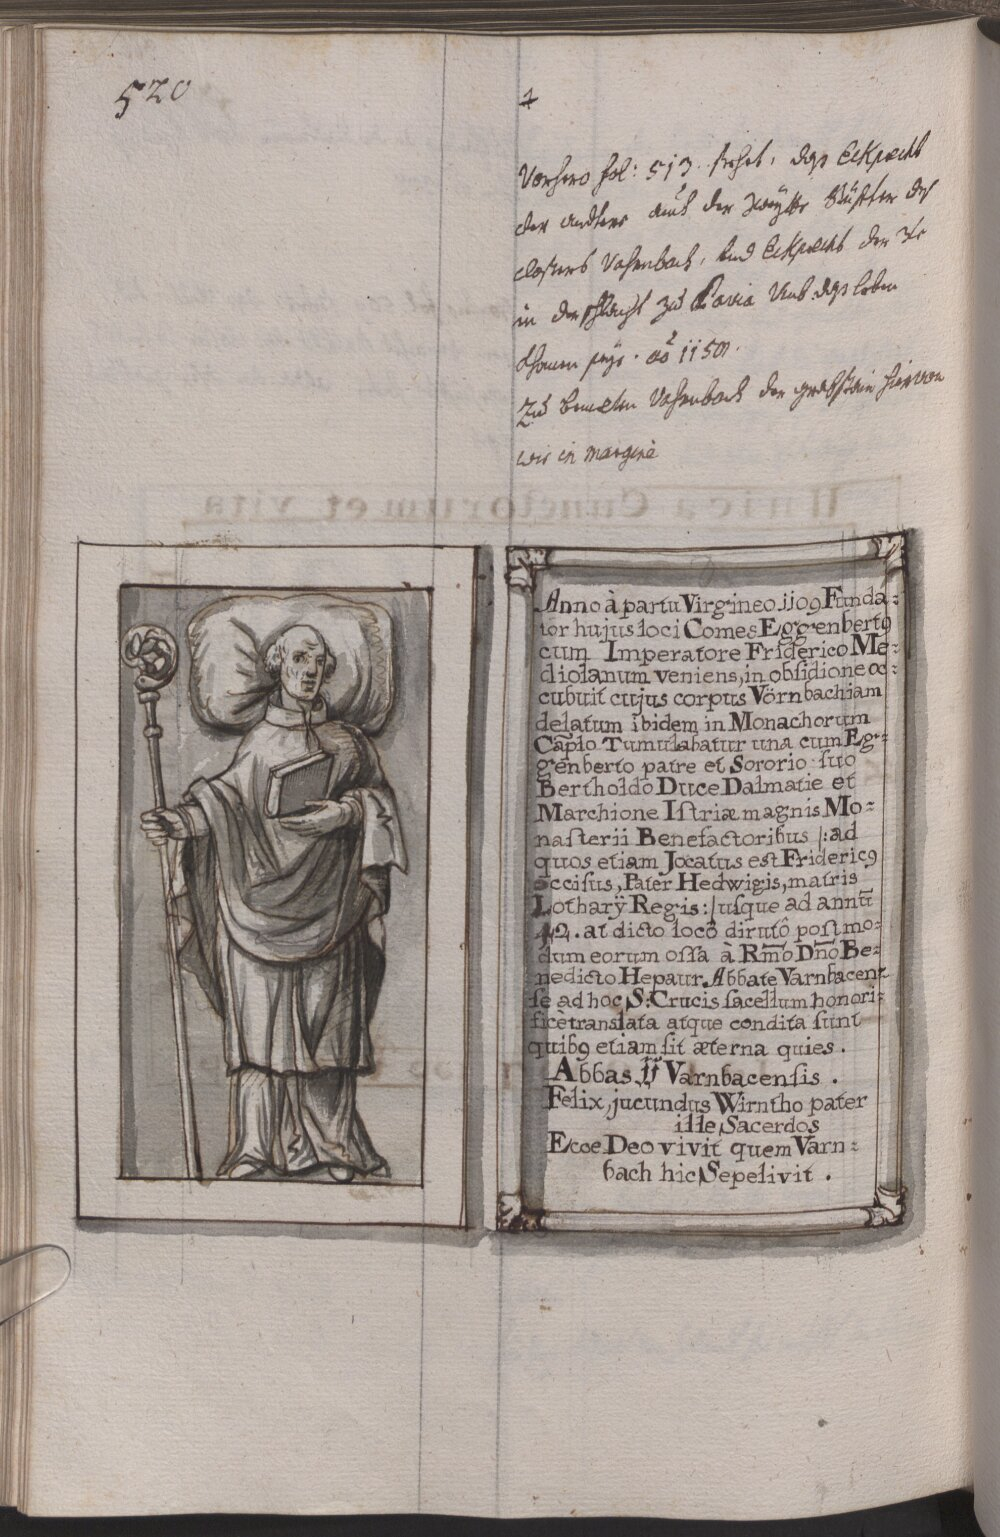 520
+
Vorhero fol: 513. stehet, dass Eckprecht
der andtere auch der zweytte Stüffter des
closters Vahrnbach, und Eckprecht der 3te
in der schlacht zu Pavia umb das leben
khomen seye. aō 1150.
Zu Vahrnbach der grabstain hiervon
wie in margine
Anno à partu Virgineo 1109 Funda=
tor hujus loci Comes Eggenbertꝰ
cum Imperatore Friderico Me=
diolanum veniens, in obsidione oc=
cubuit cujus corpus Vörnbachiam
delatum ibidem in Monachorum
Cap̄lo Tumulabatur una cum Eg=
genberto patre et Sororio suo
Bertholdo Duce Dalmatie et
Marchione Istriæ magnis Mo=
nasterii Benefactoribus /: ad
quos etiam Jocatus est Fridericꝰ
occisus, Pater Hedwigis, matris
Lotharÿ Regis :/ usque ad annū
42. at dicto locô dirutô postmo=
dum eorum ossa à Rm̄o Dn̄o Be=
nedicto Hepaur Abbate Varnbacen=
se ad hoc S: Crucis sacellum honori=
ficè translata atque condita sunt
quibꝰ etiam sit æterna quies.
Abbas II Varnbacensis.
Felix, jucundus Wirntho pater
ille Sacerdos
Ecce Deo vivit quem Varn=
bach hic Sepelivit.